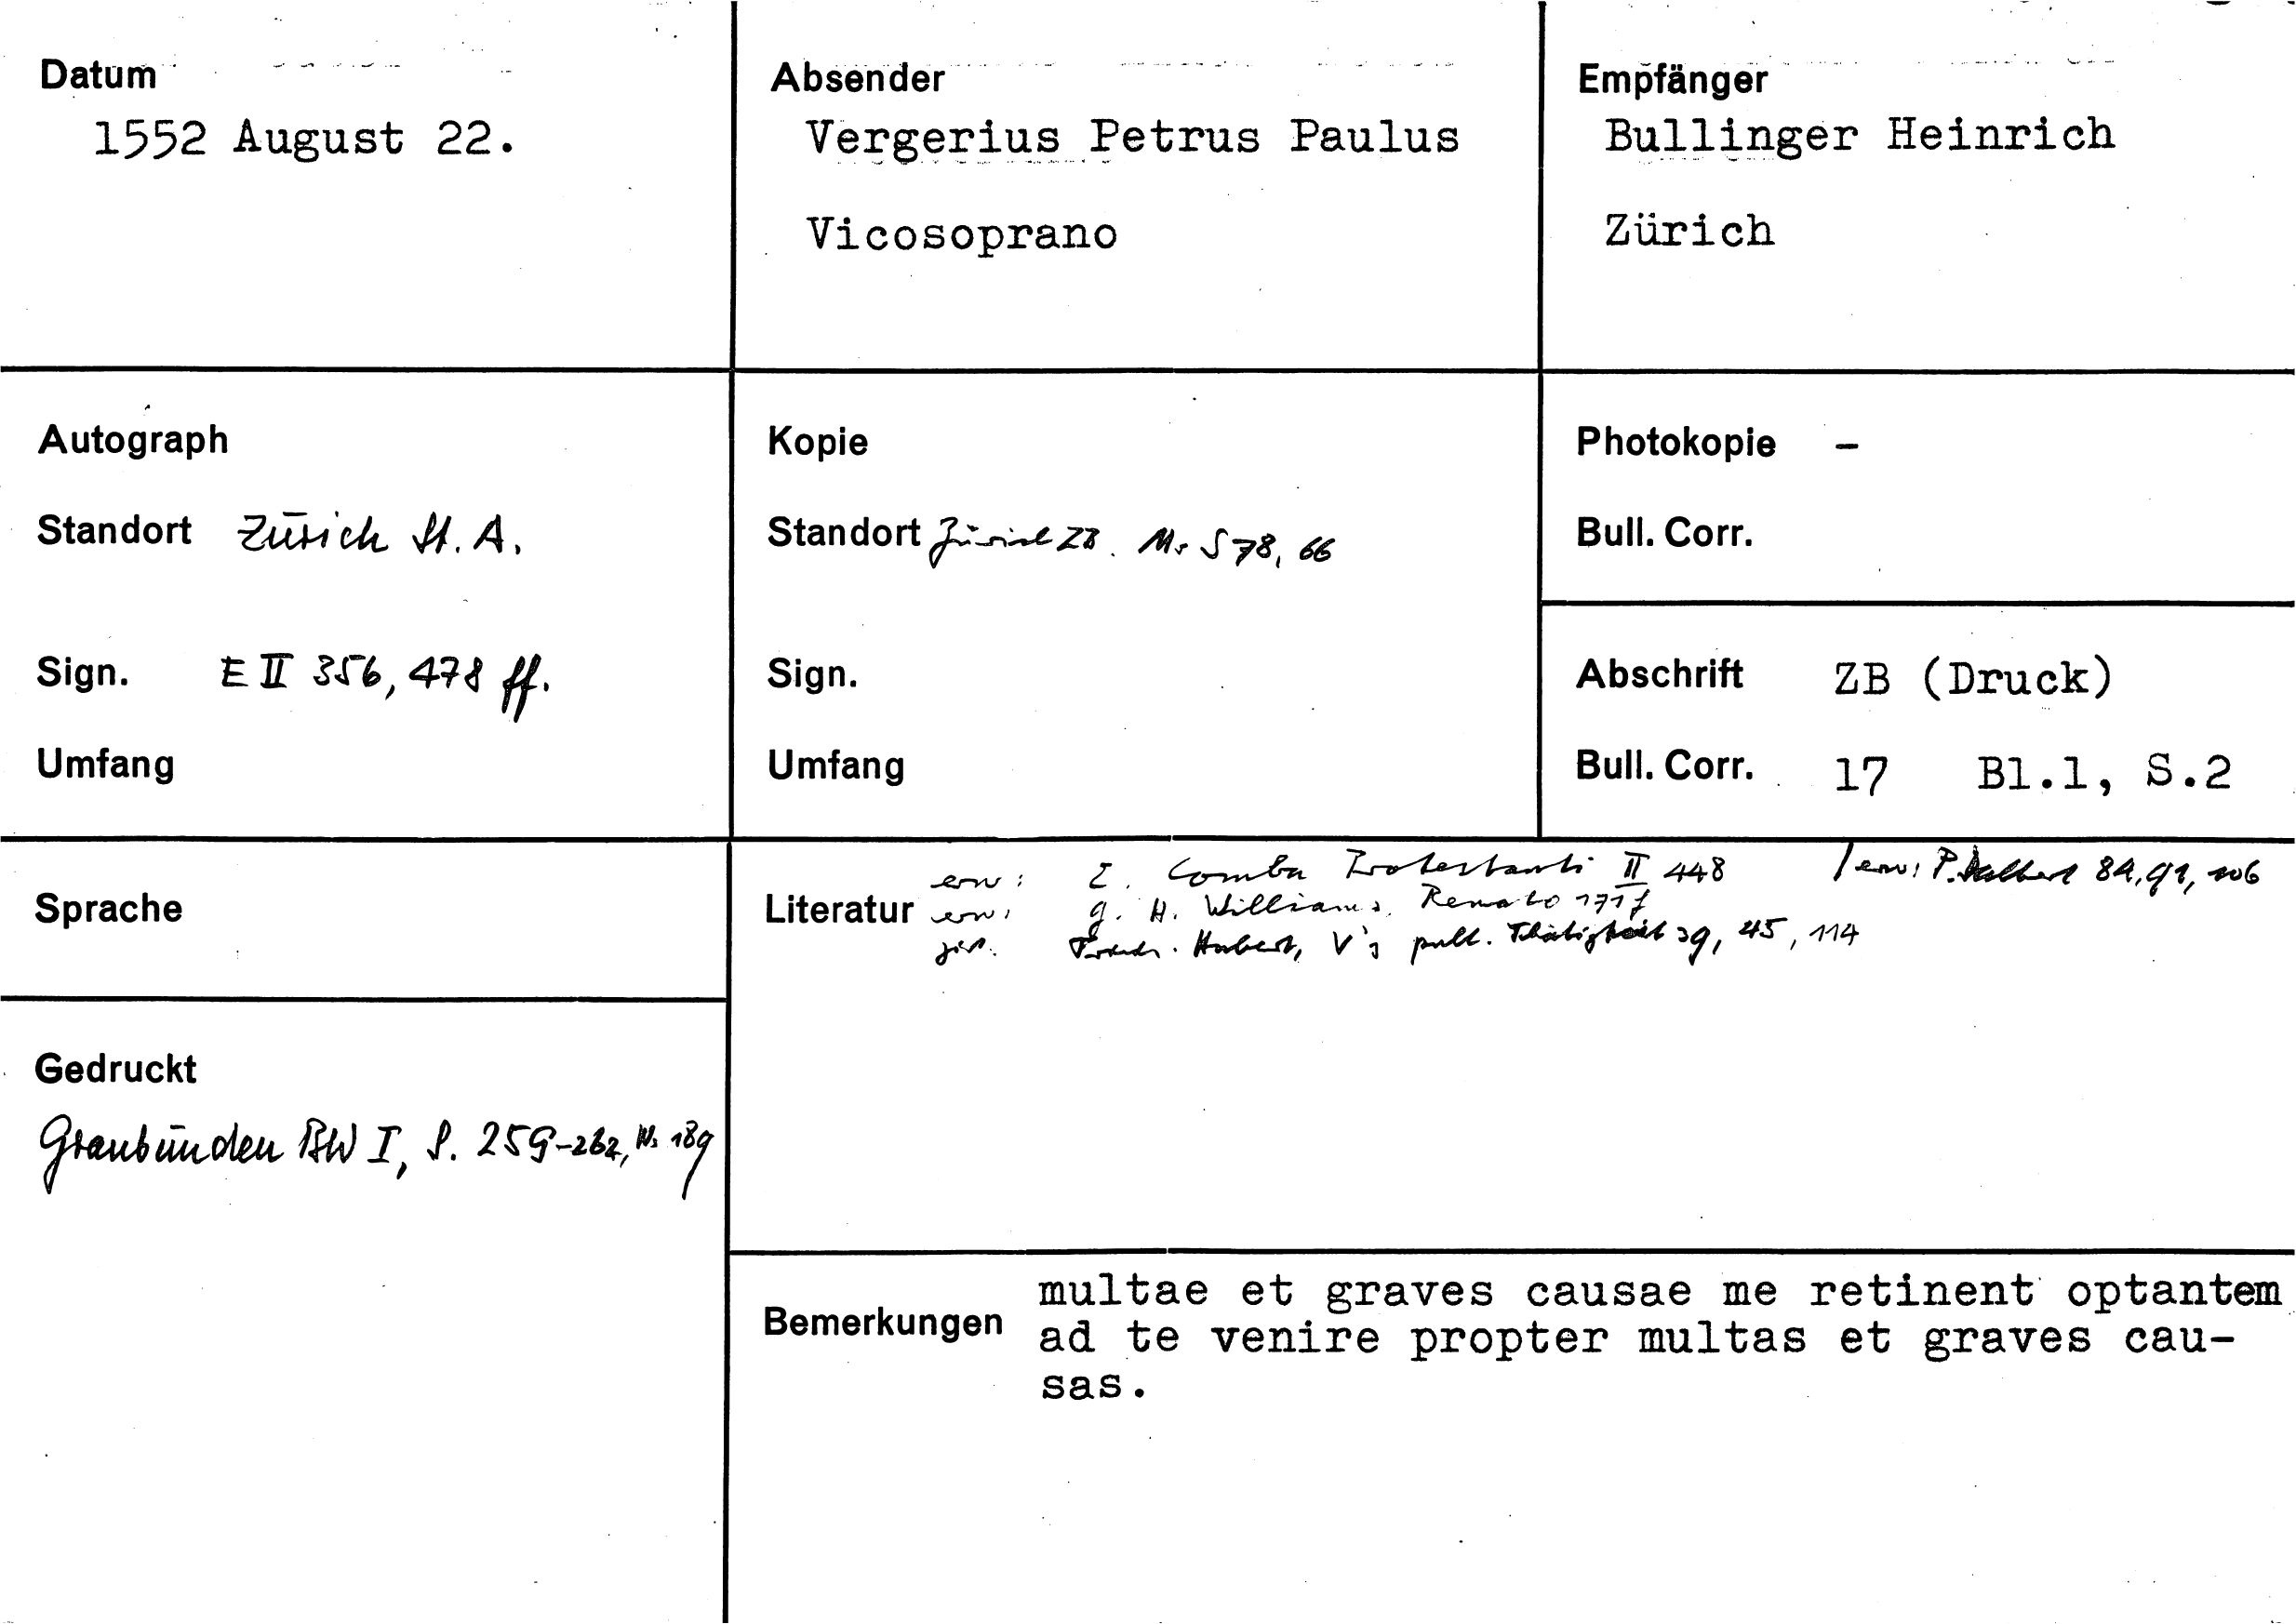 Datum
1552 August 22.
Absender
Vergerius Petrus Paulus
Vicosoprano
Empfänger
Bullinger Heinrich
Zürich
Autograph
Standort Zürich St. A.
Sign. E II 356, 478 ff.
Umfang
Kopie
Standort Zürich ZB. Ms S 78, 66
Sign.
Umfang
Photokopie -
Bull. Corr.
Abschrift ZB (Druck)
Bull. Corr. 17 Bl.1, S.2
Sprache
Gedruckt
Graubünden BW I, S. 259-262, Nr 189
Literatur
erw: E. Comba Protestanti II 448 / erw: P. Dalbert 84, 91, 106
erw: G. H. Williams, Renato 171f
zit. Friedr. Hubert, V's publ. Thätigkeit 39, 45, 114
Bemerkungen
multae et graves causae me retinent optantem
ad te venire propter multas et graves cau-
sas.